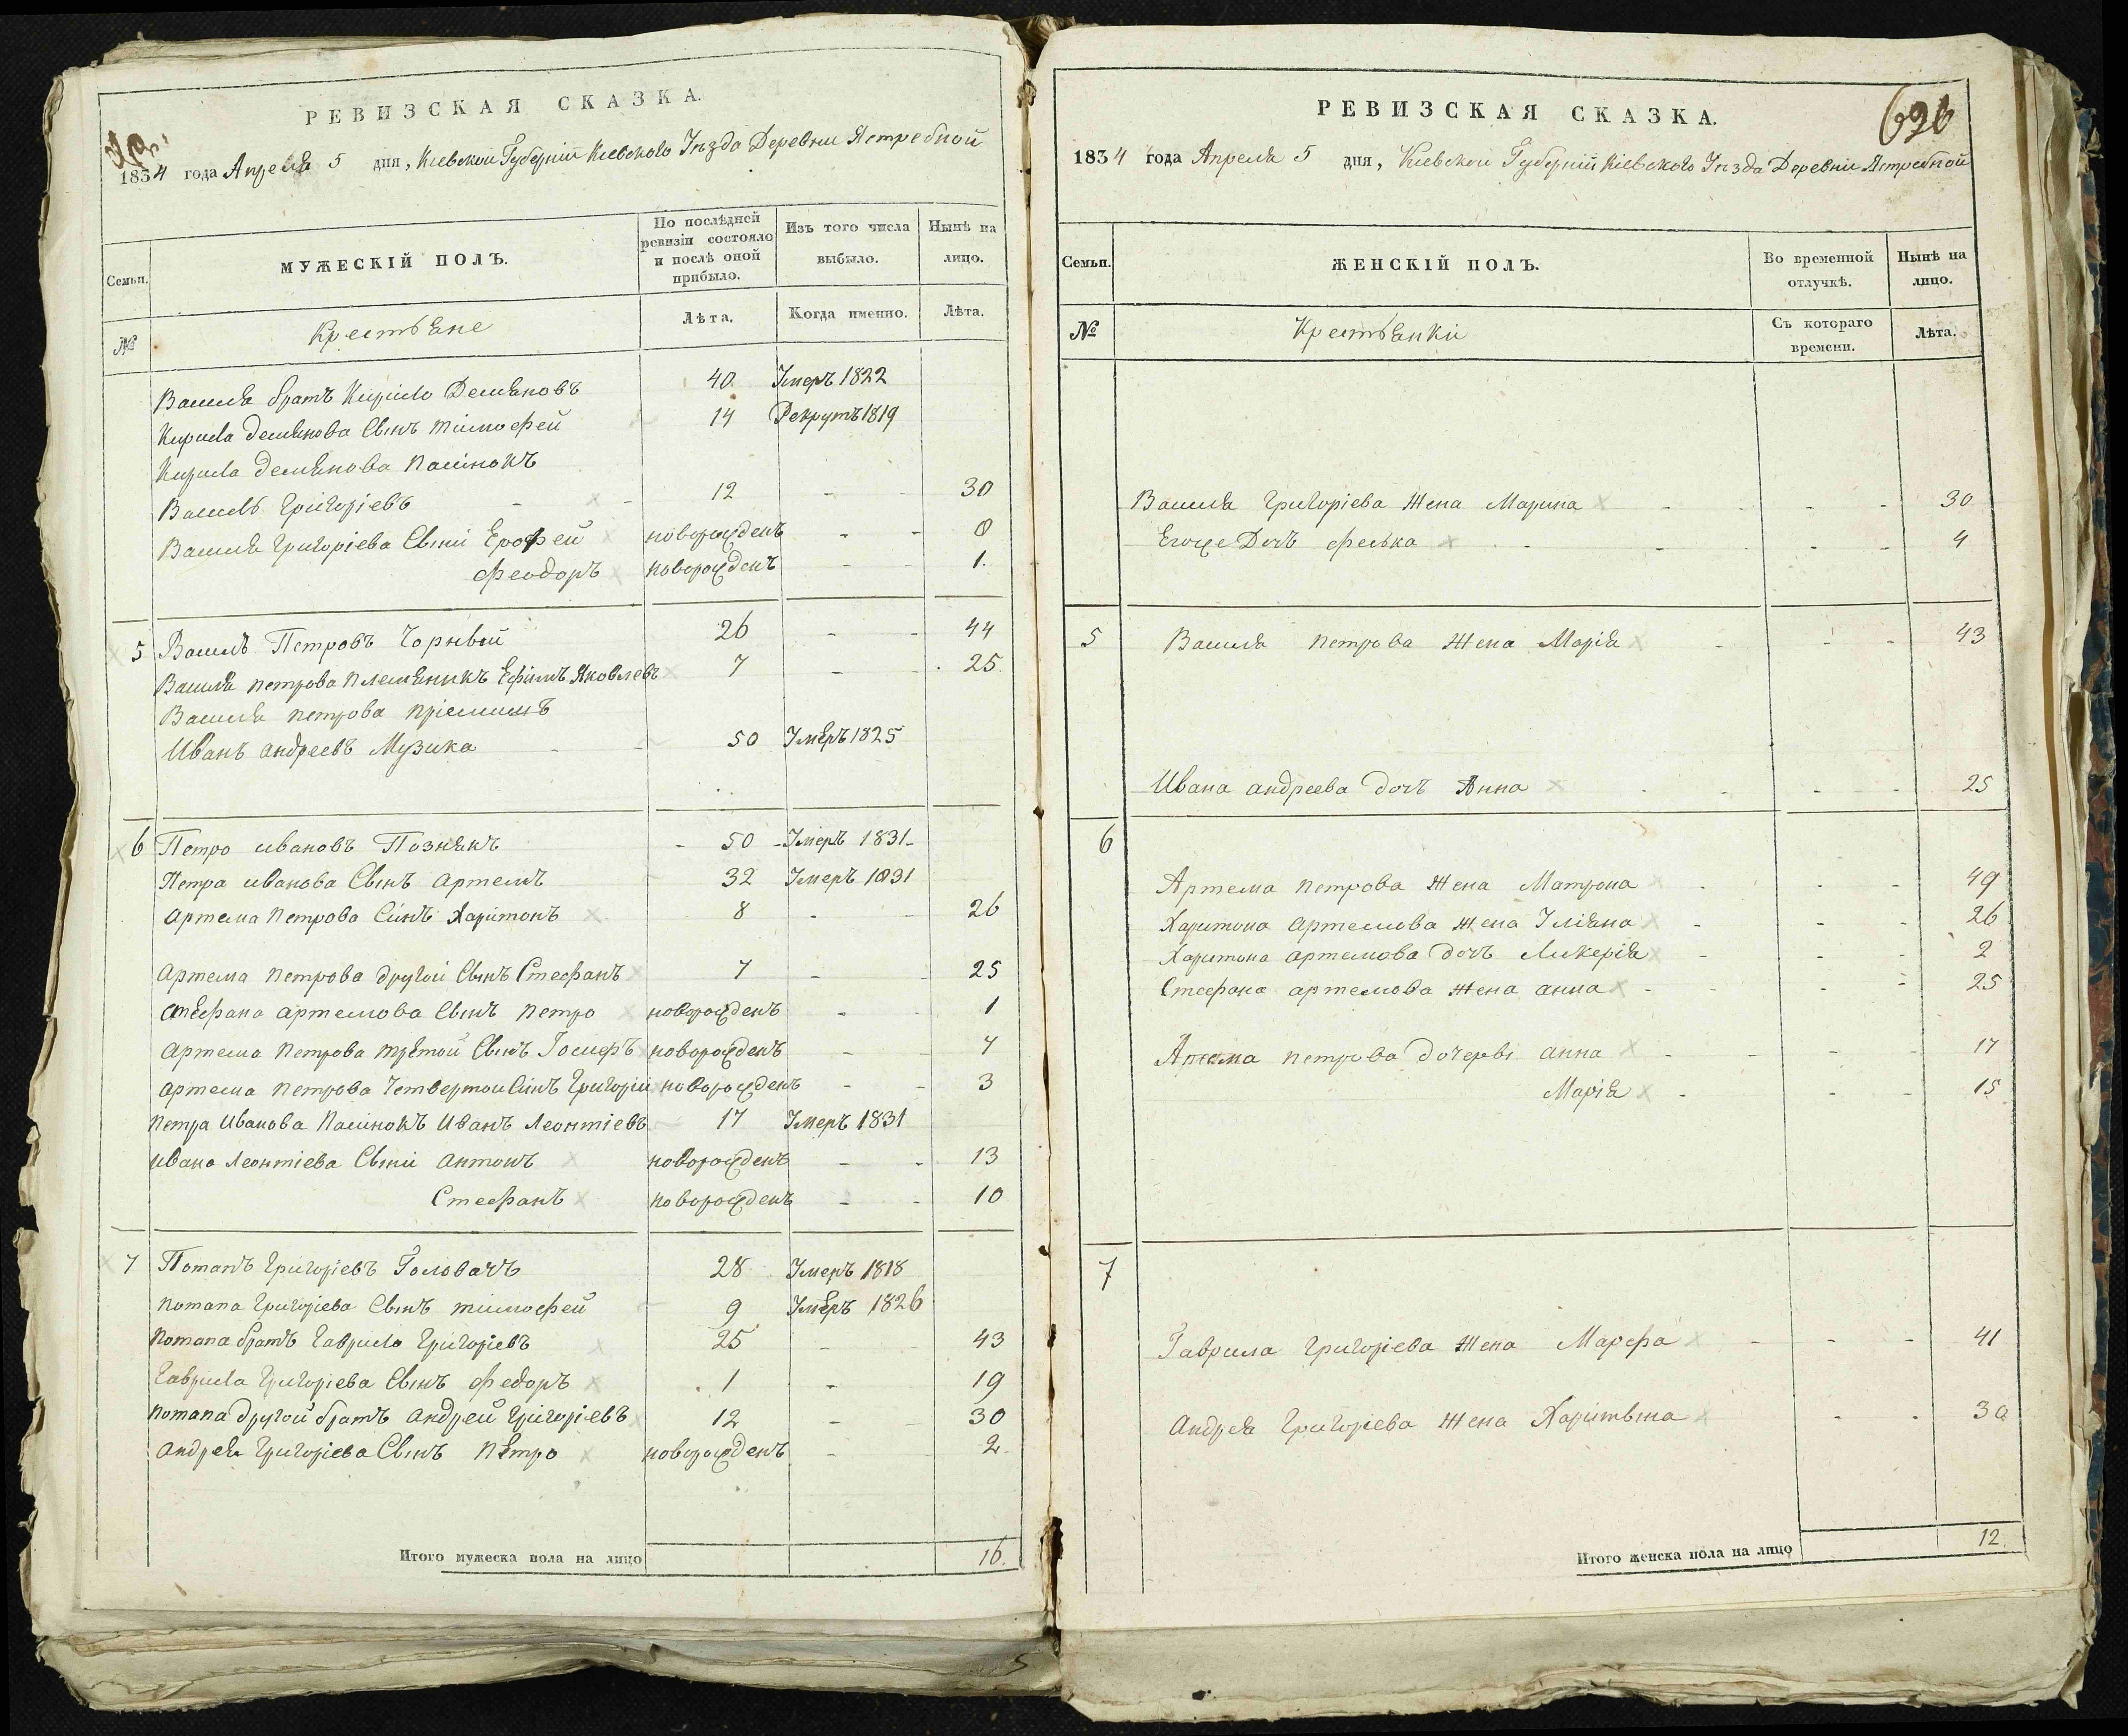 РЕВИЗСКАЯ СКАЗКА.
1834 года Апреля 5 дня, Киевской Губернии Киевского Уезда Деревни Ястребной
Семьи.
МУЖЕСКІЙ ПОЛЪ.
По послѣдней ревизіи состояло и послѣ оной прибыло.
Изъ того числа выбыло.
Нынѣ на лицо.
№
Крестьяне
Лѣта.
Когда именно.
Лѣта.
Василя братъ Кирило Демяновъ 40 Умеръ 1822
Кирила Демянова Сынъ Тимофей 14 Рекрутъ 1819
Кирила Демянова Пасинокъ
Василь Григоріевъ - - 12 - - 30
Василя Григоріева Сыны Ерофей новорожденъ - - 8
Феодоръ новорожденъ - - 1.
5 Василь Петровъ Чорный 26 - - 44
Василя Петрова Племяникъ Ефимъ Яковлевъ 7 - - 25
Василя Петрова Пріемишъ
Иванъ Андреевъ Музика - - 50 Умеръ 1825
6 Петро Ивановъ Познякъ - 50 - Умеръ 1831 -
Петра Иванова Сынъ Артемъ - 32 Умеръ 1831
Артема Петрова Синъ Харитонъ 8 - - 26
Артема Петрова другой Сынъ Стефанъ 7 - - 25
Стефана Артемова Сынъ Петро новорожденъ - - 1
Артема Петрова третой Сынъ Іосифъ новорожденъ - 4
Артема Петрова Четвертои Синъ Григорій новорожденъ - - 3
Петра Иванова Пасинокъ Иванъ Леонтіевъ 17 Умеръ 1831
Ивана Леонтіева Сыни Антонъ новорожденъ - - 13
Стефанъ новорожденъ - - 10
7 Потапъ Григоріевъ Головачъ 28 Умеръ 1818
Потапа Григоріева Сынъ Тимофей 9 Умеръ 1826
Потапа братъ Гаврило Григоріевъ 25 - 43
Гаврила Григоріева Сынъ Федоръ 1 - 19
Потапа другой братъ Андрей Григоріевъ 12 - 30
Андрея Григоріева Сынъ Петро новорожденъ - 2
Итого мужеска пола на лицо 16.
626
РЕВИЗСКАЯ СКАЗКА.
1834 года Апреля 5 дня, Киевской Губерніи Кіевского Уезда Деревни Ястребной
Семьи.
ЖЕНСКІЙ ПОЛЪ.
Во временной отлучкѣ.
Нынѣ на лицо.
№
Крестьянки
Съ котораго времени.
Лѣта.
Василя Григоріева Жена Марина - - - 30
Егоже Дочъ Феська - - - 4
5 Василя Петрова Жена Марія - - - 43
Ивана Андреева дочъ Анна - - - - 25
6
Артема Петрова Жена Матрона - - - 49
Харитона Артемова Жена Уліяна - - - 26
Харитона Артемова дочъ Ликерія - - - 2
Стефана Артемова Жена Анна - - - 25
Артема Петрова дочеры Анна - - - - 17
Марія - - - 15
7
Гаврила Григоріева Жена Марфа - - - 41
Андрея Григоріева Жена Харитына - - 30
Итого женска пола на лицо 12.